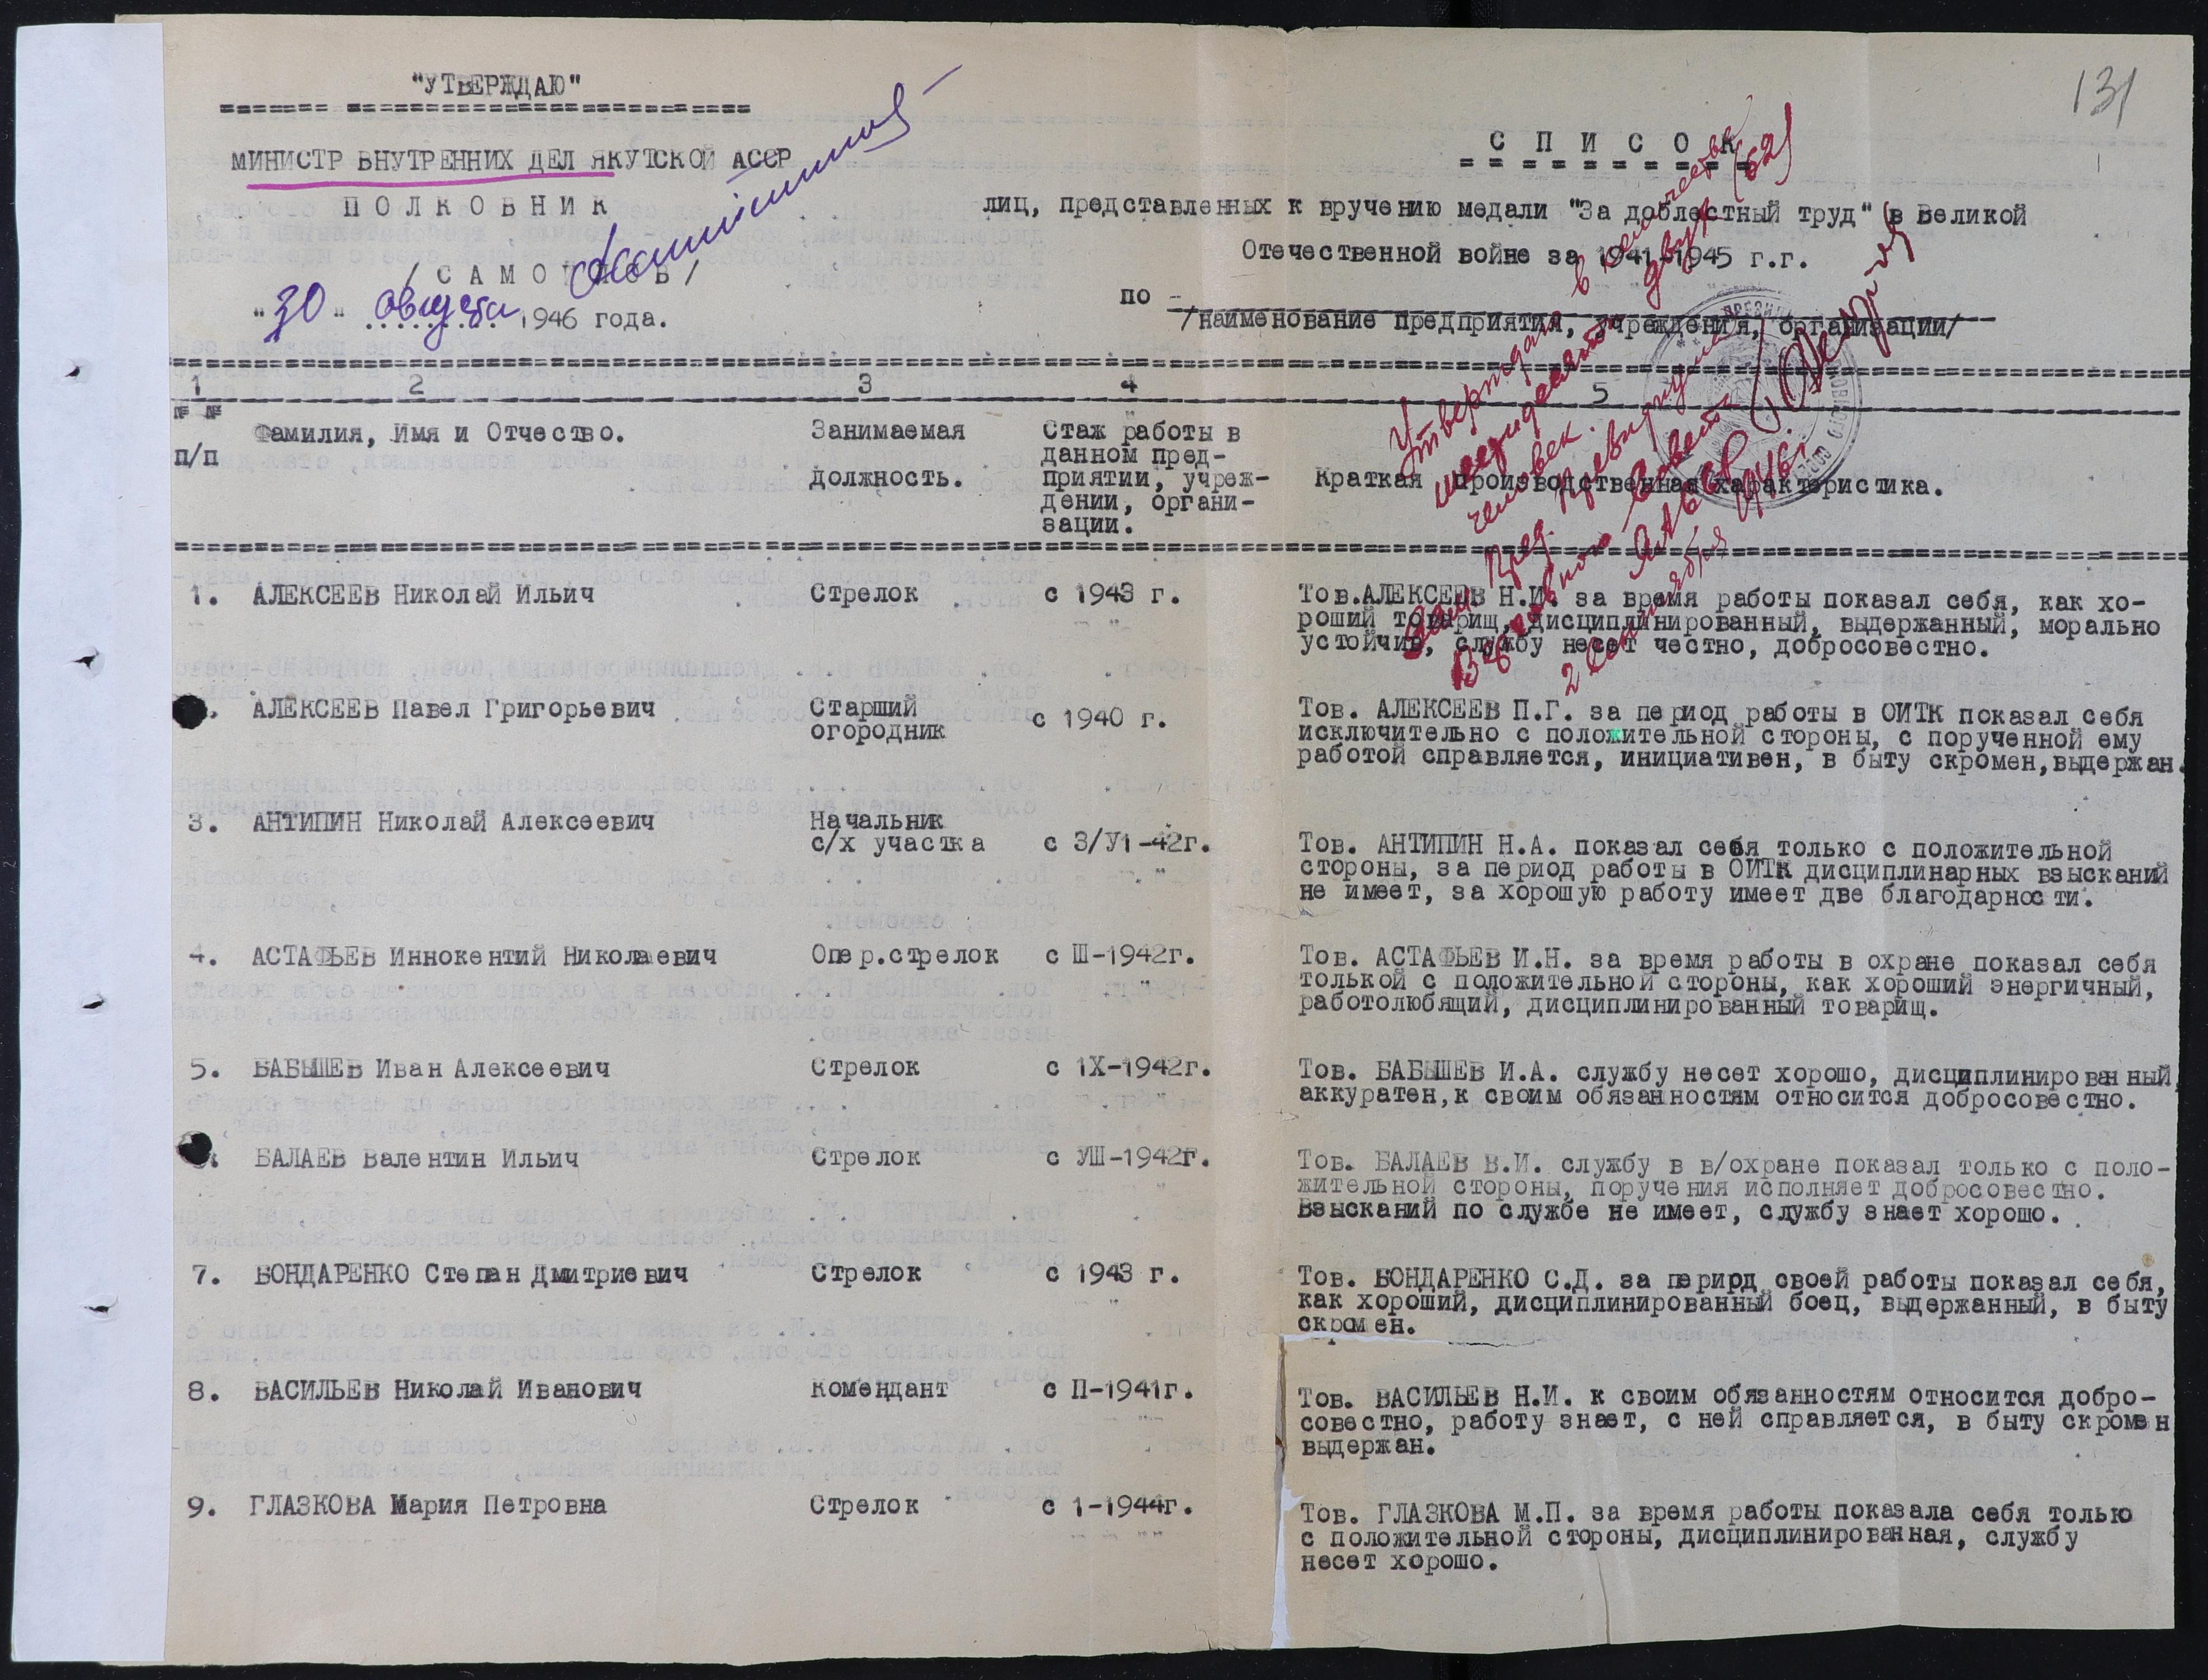 131
"УТВЕРЖДАЮ"
МИНИСТР ВНУТРЕННИХ ДЕЛ ЯКУТСКОЙ АССР
ПОЛКОВНИК
/САМО В/
"30" августа 1946 года.
СПИСОК
лиц, представленных к вручению медали "За доблестный труд" в Великой
Отечественной войне за 1941-1945 г.г.
по -
/наименование предприятия, учреждения, организации/
Утверждаю в количестве
шестидесяти двух (62)
человек.
Зам. Пред. Президиума
Верховного Совета
ЯАССР
2 сентября 1946г.
1 2 3 4 5
№ №
п/п
Фамилия, Имя и Отчество.
Занимаемая
должность.
Стаж работы в
данном пред-
приятии, учреж-
дении, органи-
зации.
Краткая производственная характеристика.
1. АЛЕКСЕЕВ Николай Ильич Стрелок с 1943 г. Тов.АЛЕКСЕЕВ Н.И. за время работы показал себя, как хо-
роший товарищ, дисциплинированный, выдержанный, морально
устойчив, службу несет честно, добросовестно.
АЛЕКСЕЕВ Павел Григорьевич Старший
огородник с 1940 г. Тов. АЛЕКСЕЕВ П.Г. за период работы в ОИТК показал себя
исключительно с положительной стороны, с порученной ему
работой справляется, инициативен, в быту скромен,выдержан.
3. АНТИПИН Николай Алексеевич Начальник
с/х участка с 3/У1-42г. Тов. АНТИПИН Н.А. показал себя только с положительной
стороны, за период работы в ОИТК дисциплинарных взысканий
не имеет, за хорошую работу имеет две благодарности.
4. АСТАФЬЕВ Иннокентий Николаевич Опер.стрелок с Ш-1942г. Тов. АСТАФЬЕВ И.Н. за время работы в охране показал себя
толькой с положительной стороны, как хороший энергичный,
работолюбящий, дисциплинированный товарищ.
5. БАБЫШЕВ Иван Алексеевич Стрелок с 1Х-1942г. Тов. БАБЫШЕВ И.А. службу несет хорошо, дисциплинированный,
аккуратен,к своим обязанностям относится добросовестно.
БАЛАЕВ Валентин Ильич Стрелок с УШ-1942г. Тов. БАЛАЕВ В.И. службу в в/охране показал только с поло-
жительной стороны, поручения исполняет добросовестно.
Взысканий по службе не имеет, службу знает хорошо.
7. БОНДАРЕНКО Степан Дмитриевич Стрелок с 1943 г. Тов. БОНДАРЕНКО С.Д. за перирд своей работы показал себя,
как хороший, дисциплинированный боец, выдержанный, в быту
скромен.
8. ВАСИЛЬЕВ Николай Иванович Комендант с П-1941г. Тов. ВАСИЛЬЕВ Н.И. к своим обязанностям относится добро-
совестно, работу знает, с ней справляется, в быту скромен
выдержан.
9. ГЛАЗКОВА Мария Петровна Стрелок с 1-1944г. Тов. ГЛАЗКОВА М.П. за время работы показала себя только
с положительной стороны, дисциплинированная, службу
несет хорошо.